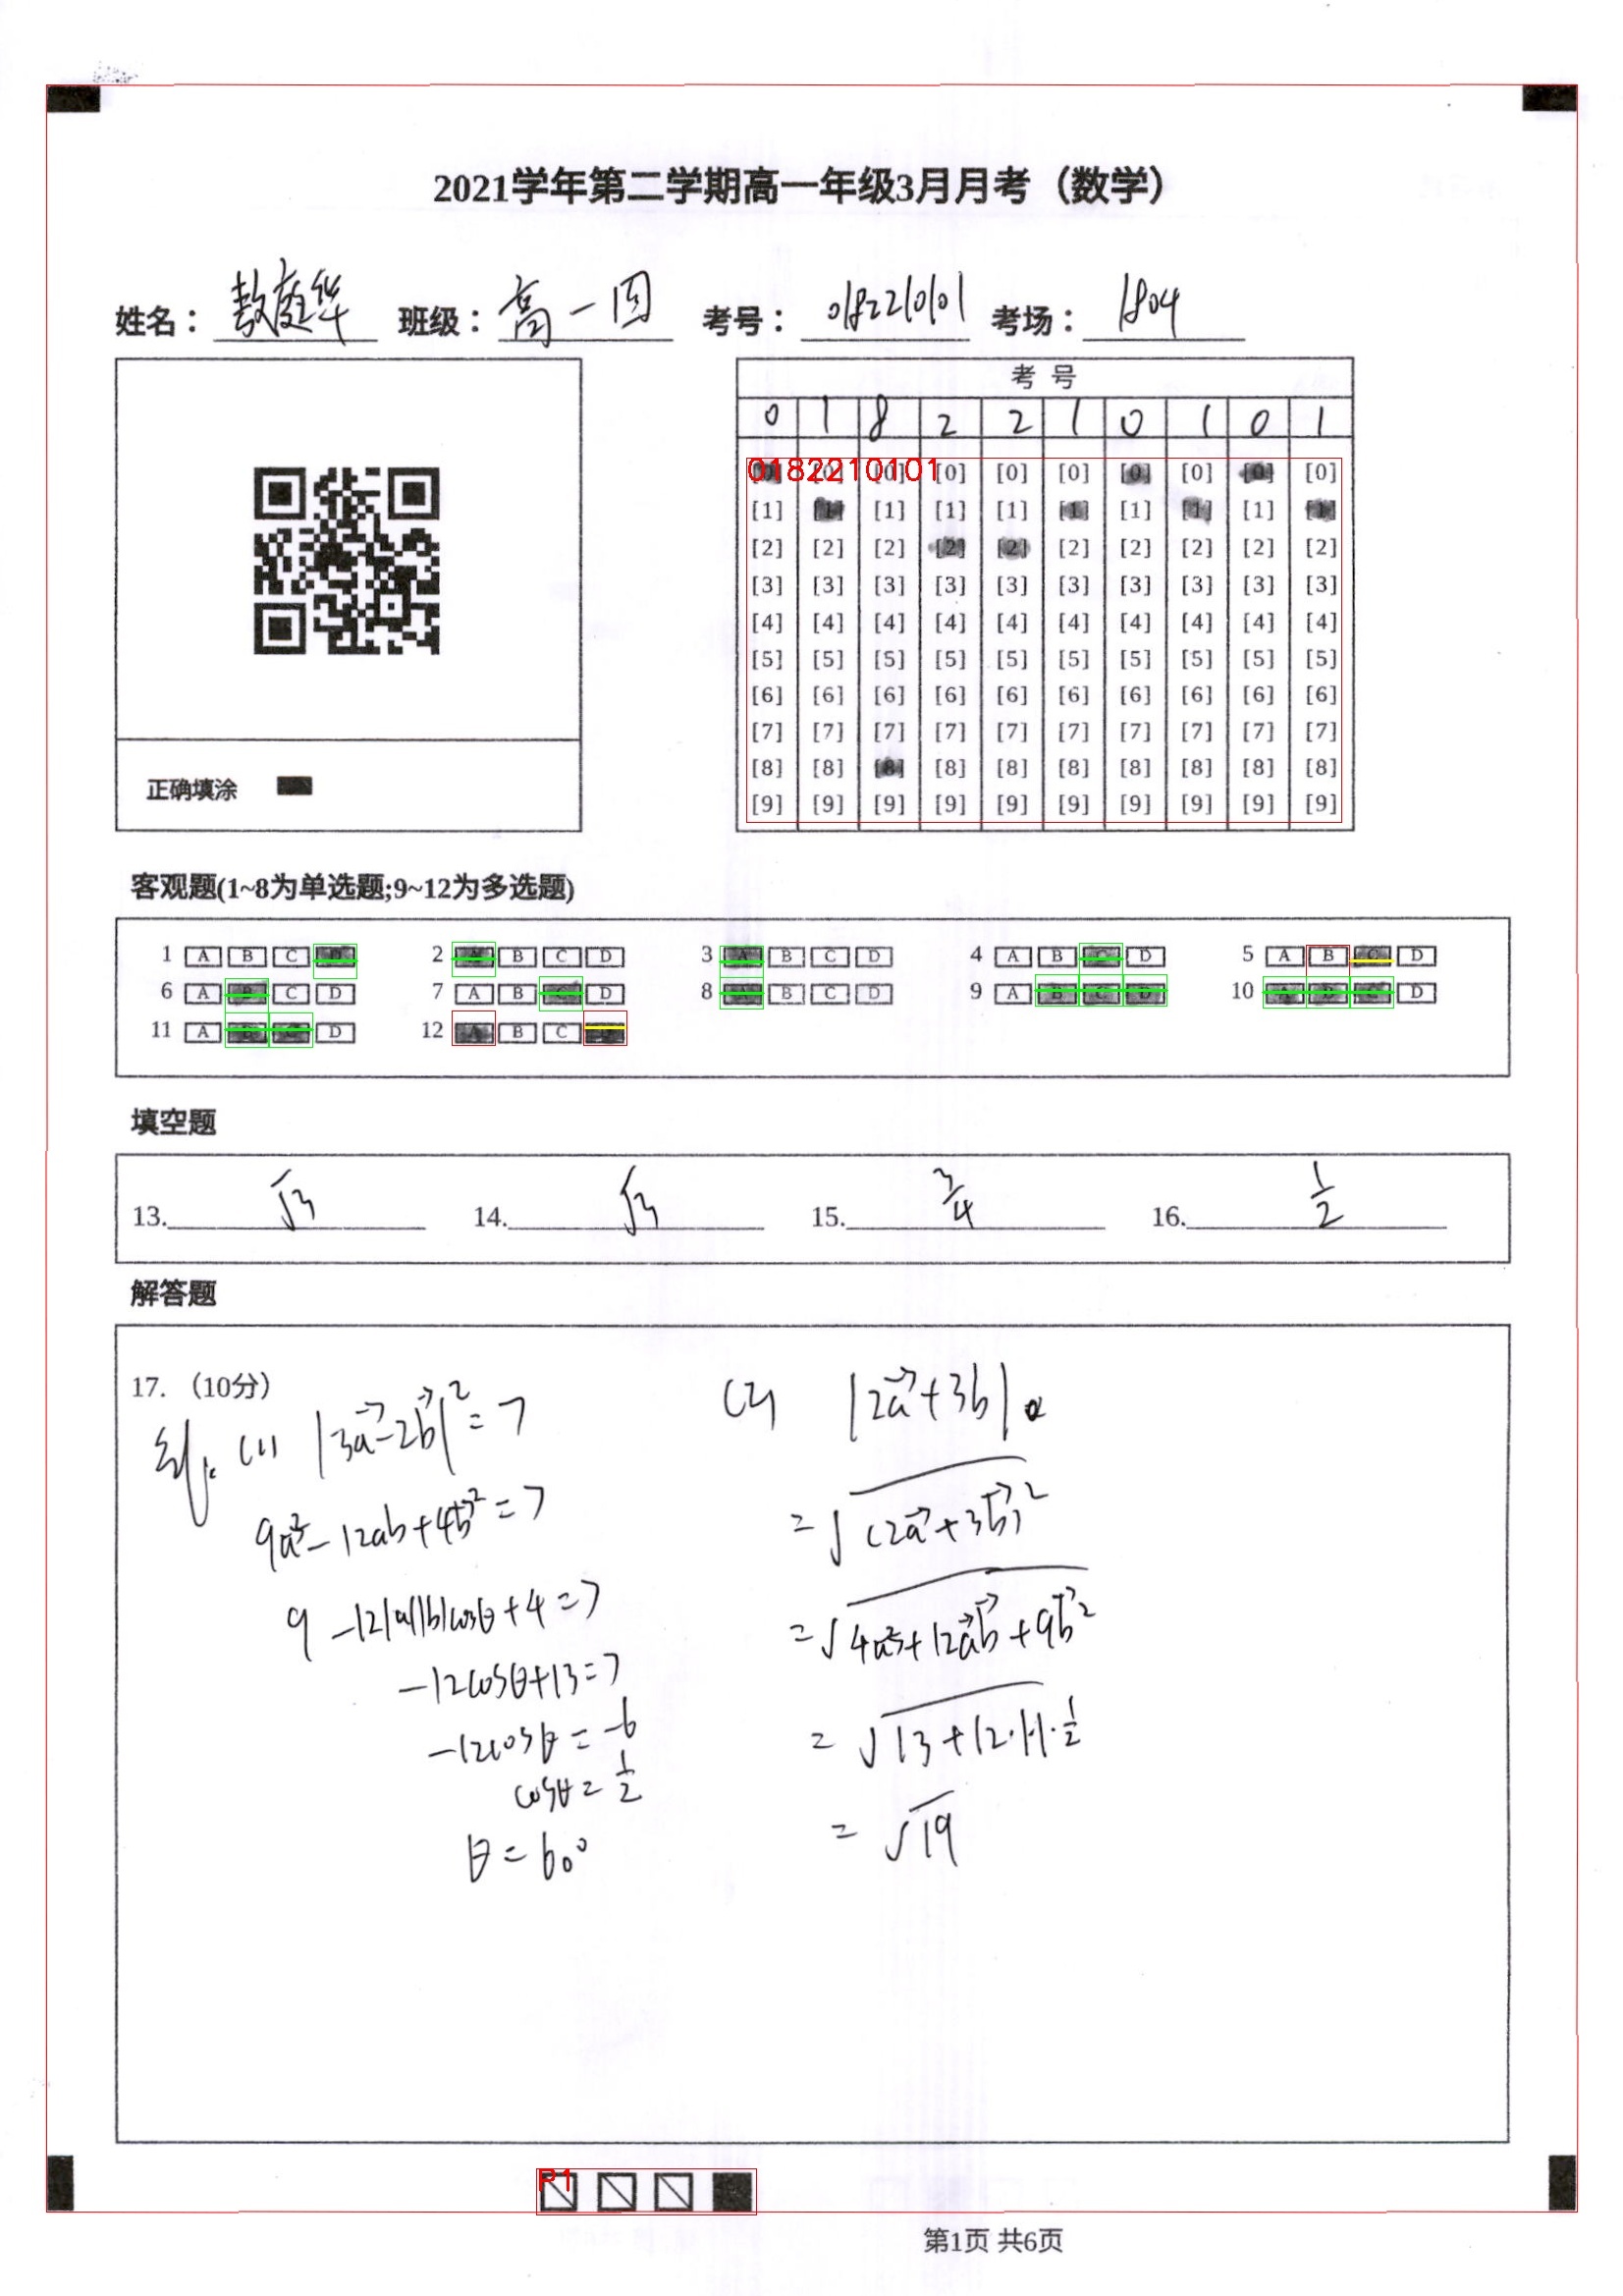 2021学年第二学期高一年级3月月考（数学）
姓名： 敖庭华 班级： 高一 考号： 0182210101 考场： 1804
考 号
0 1 8 2 2 1 0 1 0 1
0182210101
[0] [0] [0] [0] [0] [0] [0] [0] [0] [0]
[1] [1] [1] [1] [1] [1] [1] [1] [1] [1]
[2] [2] [2] [2] [2] [2] [2] [2] [2] [2]
[3] [3] [3] [3] [3] [3] [3] [3] [3] [3]
[4] [4] [4] [4] [4] [4] [4] [4] [4] [4]
[5] [5] [5] [5] [5] [5] [5] [5] [5] [5]
[6] [6] [6] [6] [6] [6] [6] [6] [6] [6]
[7] [7] [7] [7] [7] [7] [7] [7] [7] [7]
[8] [8] [8] [8] [8] [8] [8] [8] [8] [8]
[9] [9] [9] [9] [9] [9] [9] [9] [9] [9]
正确填涂
客观题(1~8为单选题;9~12为多选题)
1 A B C D 2 A B C D 3 A B C D 4 A B C D 5 A B C D
6 A B C D 7 A B C D 8 A B C D 9 A B C D 10 A B C D
11 A B C D 12 A B C D
填空题
13. √3 14. √3 15. 3/4 16. 1/2
解答题
17. （10分）
解: (1) |3a⃗-2b⃗|²=7
9a⃗²-12ab+4b⃗²=7
9-12|a||b|cosθ+4=7
-12cosθ+13=7
-12cosθ=-6
cosθ=1/2
θ=60°
(2) |2a⃗+3b|
=√(2a⃗+3b⃗)²
=√4a⃗²+12a⃗b⃗+9b⃗²
=√13+12·1·1·1/2
=√19
P1
第1页 共6页